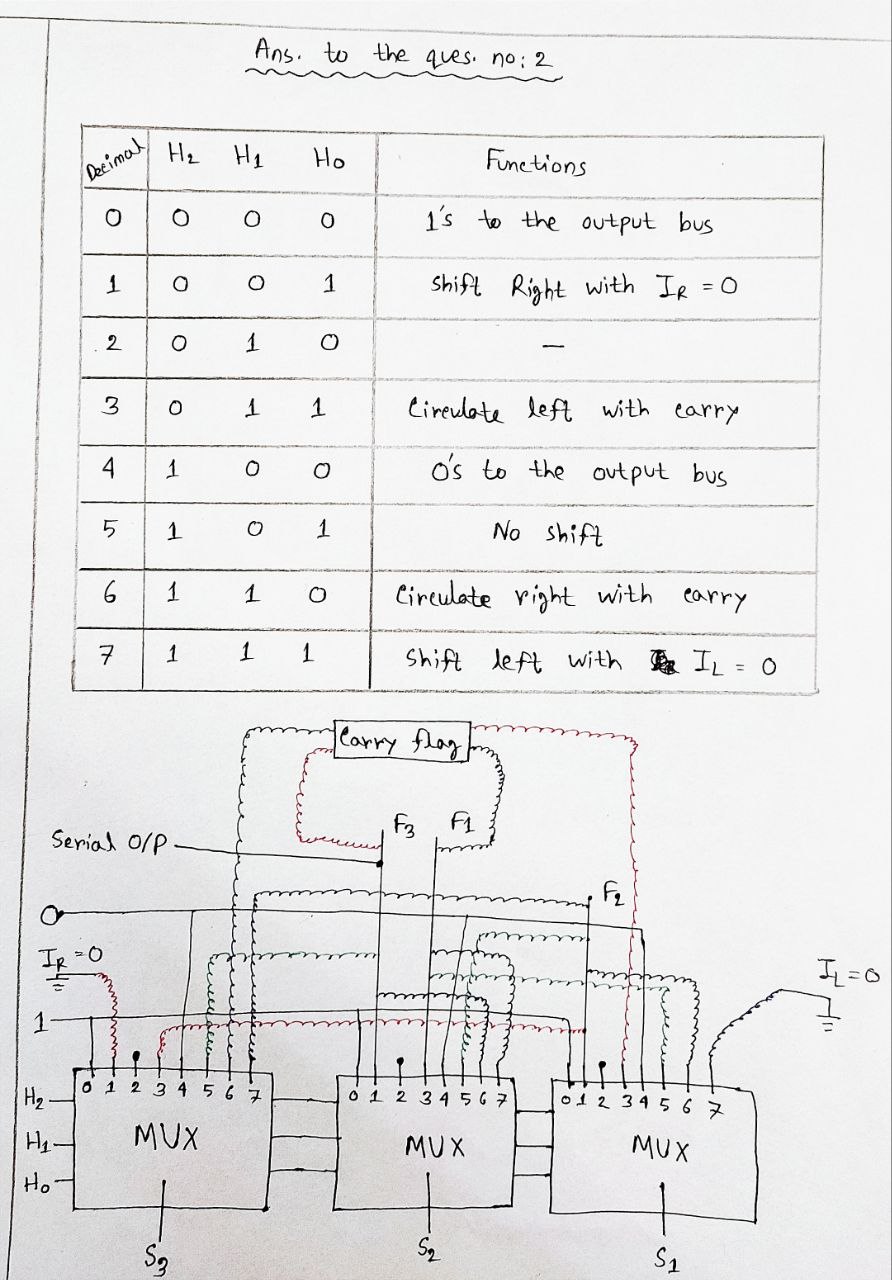 Ans. to the ques. no: 2
Decimal H2 H1 H0 Functions
0 0 0 0 1's to the output bus
1 0 0 1 Shift Right with IR = 0
2 0 1 0 —
3 0 1 1 Circulate left with carry
4 1 0 0 0's to the output bus
5 1 0 1 No shift
6 1 1 0 Circulate right with carry
7 1 1 1 Shift left with IL = 0
Carry flag
F3 F1
Serial O/P
F2
0
IR = 0
IL = 0
1
0 1 2 3 4 5 6 7
0 1 2 3 4 5 6 7
0 1 2 3 4 5 6 7
H2
H1
H0
MUX MUX MUX
S3 S2 S1